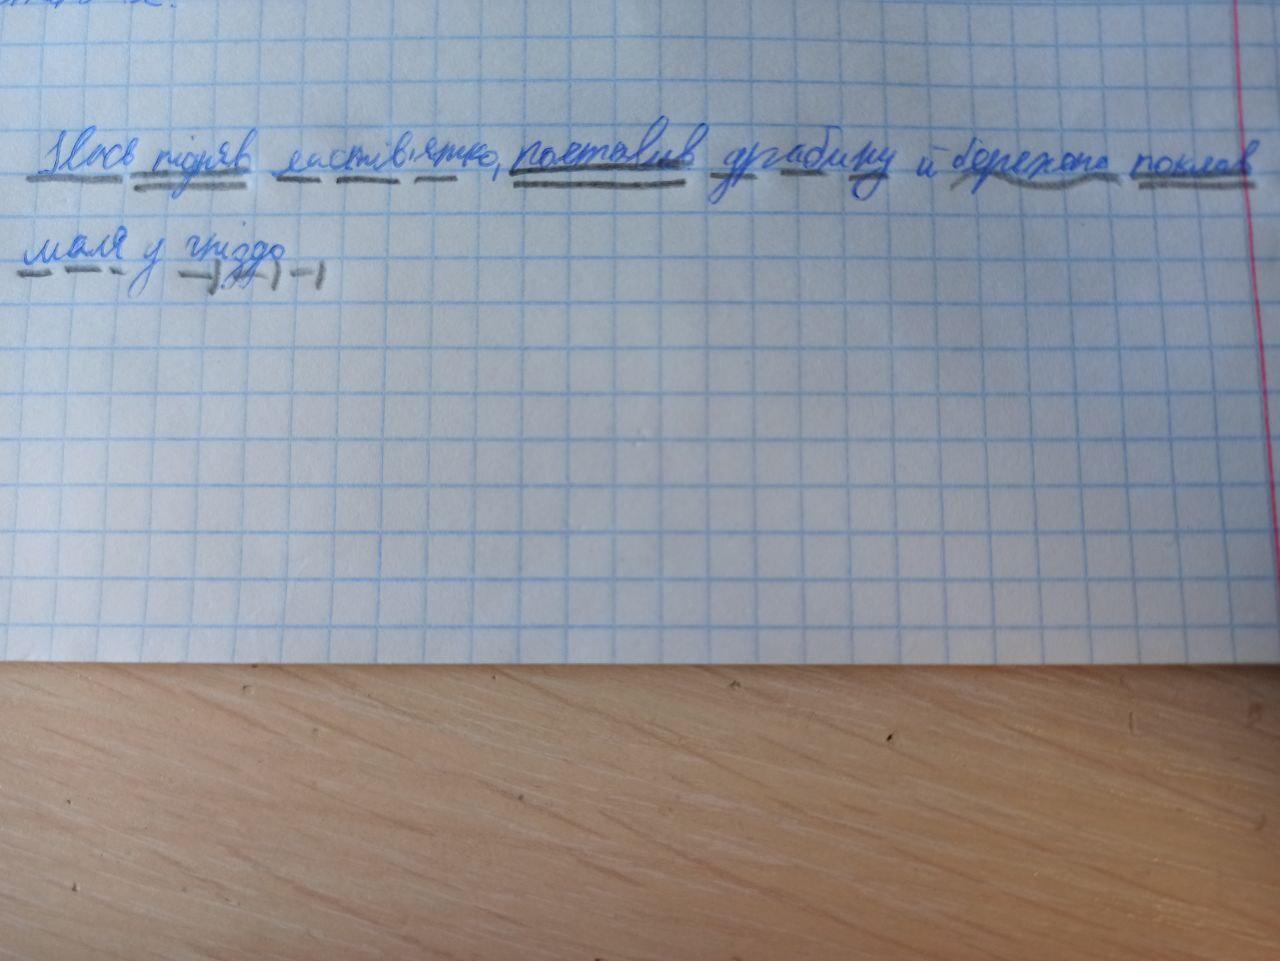 Івась підняв ластів'ятко, поставив драбину й бережно поклав
маля у гніздо